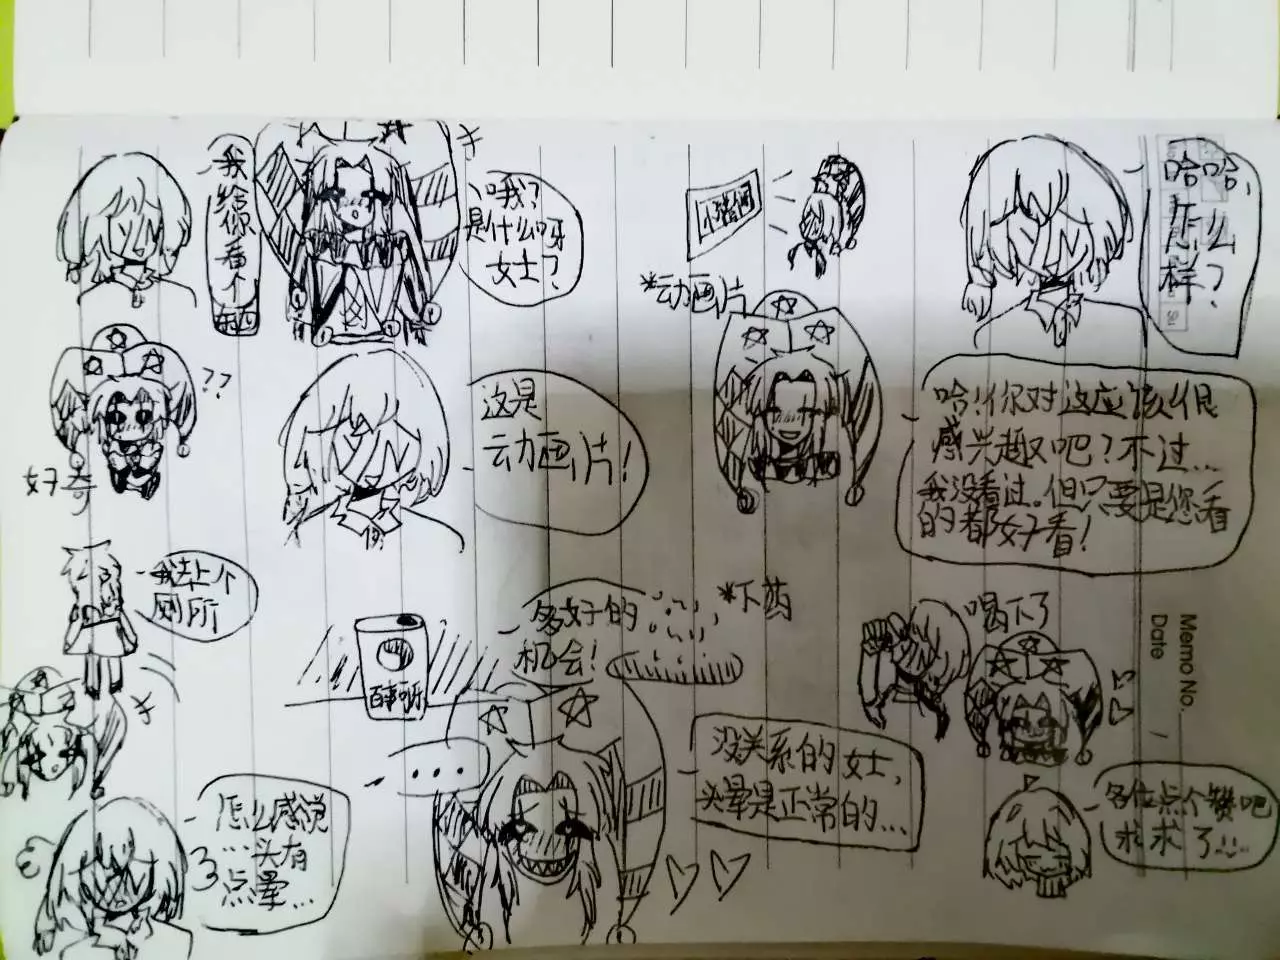 我
给
你
看
个
东西
哦？
是什么呀
女士？
小猪佩
*动画片
哈哈，
怎么
样？
??
好奇
这是
动画片！
哈！你对这应该很
感兴趣吧？不过...
我没看过。但只要是您看
的都好看！
我去上个
厕所
百事可乐
多好的
机会！
*下药
喝下了
怎么感觉
...头有
点晕...
...
没关系的女士，
头晕是正常的...
各位点个赞吧
求求了
Memo No.
Date